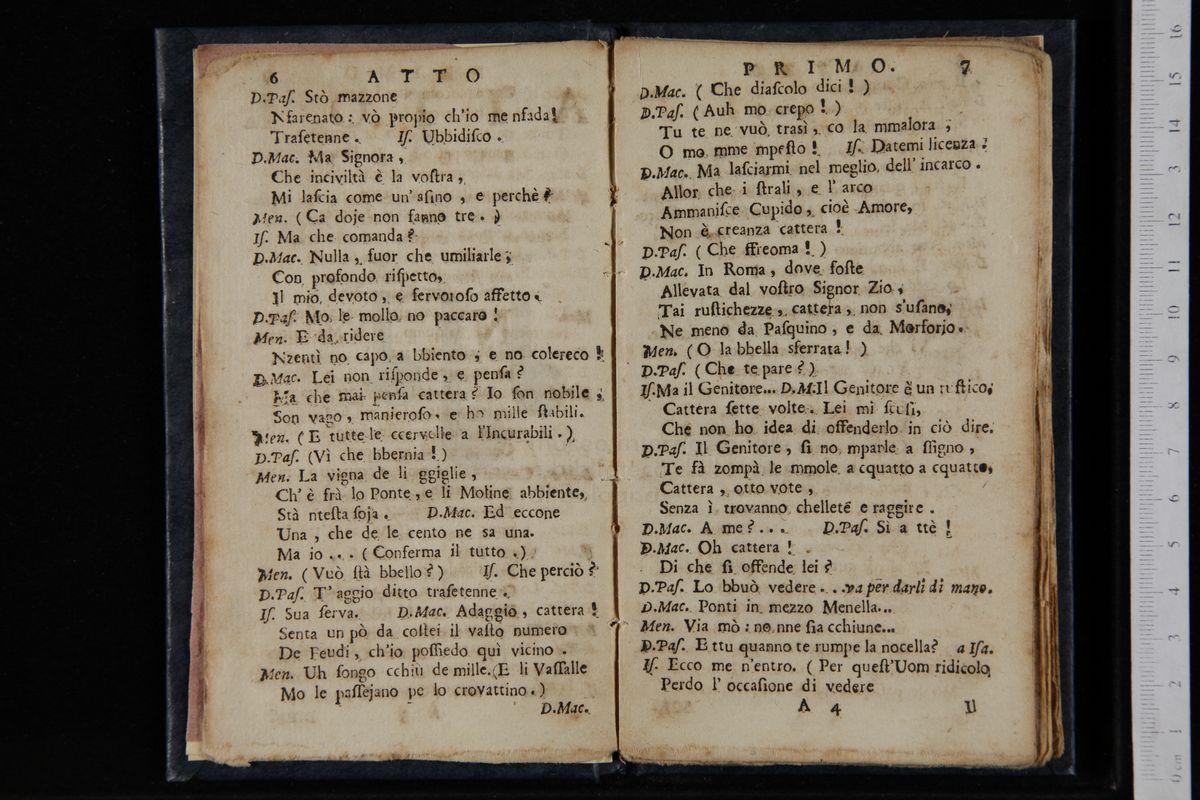 6 ATTO
D.Paſ. Stò mazzone
Nfarenato: vò propio ch'io me nfada!
Traſetenne. Iſ. Ubbidiſco.
D.Mac. Ma Signora,
Che inciviltà è la voſtra,
Mi laſcia come un'aſino, e perchè?
Men. (Ca doje non fanno tre.)
Iſ. Ma che comanda?
D.Mac. Nulla, fuor che umiliarle;
Con profondo riſpetto,
Il mio, devoto, e fervoroſo affetto.
D.Paſ. Mo, le mollo no paccaro!
Men. E da ridere
Nzentì no capo a bbiento, e no colereco!
D.Mac. Lei non riſponde, e penſa?
Ma che mai penſa cattera? Io ſon nobile,
Son vago, manieroſo, e ho mille ſtabili.
Men. (E tutte le ccervelle a l'Incurabili.)
D.Paſ. (Vì che bbernia!)
Men. La vigna de li ggiglie,
Ch'è frà lo Ponte, e li Moline abbiente,
Stà nteſta ſoja. D.Mac. Ed eccone
Una, che de le cento ne sa una.
Ma io... (Conferma il tutto.)
Men. (Vuò ſtà bbello?) Iſ. Che perciò?
D.Paſ. T'aggio ditto traſetenne.
Iſ. Sua ſerva. D.Mac. Adaggio, cattera!
Senta un pò da coſtei il vaſto numero
De Feudi, ch'io poſſiedo quì vicino.
Men. Uh ſongo cchiù de mille. (E li Vaſſalle
Mo le paſſejano pe lo crovattino.)
D.Mac.
PRIMO. 7
D.Mac. (Che diaſcolo dici!)
D.Paſ. (Auh mo crepo!)
Tu te ne vuò, trasì, co la mmalora;
O mo, mme mpeſto! Iſ. Datemi licenza!
D.Mac. Ma laſciarmi nel meglio, dell'incarco.
Allor che i ſtrali, e l'arco
Ammaniſce Cupido, cioè Amore,
Non è creanza cattera!
D.Paſ. (Che ffreoma!)
D.Mac. In Roma, dove foſte
Allevata dal voſtro Signor Zio,
Tai ruſtichezze, cattera, non s'uſano,
Ne meno da Paſquino, e da Morforio.
Men. (O la bbella sferrata!)
D.Paſ. (Che te pare?)
Iſ. Ma il Genitore... D.M. Il Genitore è un ruſtico,
Cattera ſette volte. Lei mi ſcuſi,
Che non ho idea di offenderlo in ciò dire.
D.Paſ. Il Genitore, ſi no mparle a ſſigno,
Te fà zompà le mmole a cquatto a cquatto,
Cattera, otto vote,
Senza ì trovanno chellete e raggire.
D.Mac. A me?... D.Paſ. Sì a ttè!
D.Mac. Oh cattera!
Di che ſi offende lei?
D.Paſ. Lo bbuò vedere... va per darli di mano.
D.Mac. Ponti in mezzo Menella...
Men. Via mò: no nne ſia cchiune...
D.Paſ. E ttu quanno te rumpe la nocella? a Iſa.
Iſ. Ecco me n'entro. (Per queſt'Uom ridicolo
Perdo l'occaſione di vedere
A 4 Il